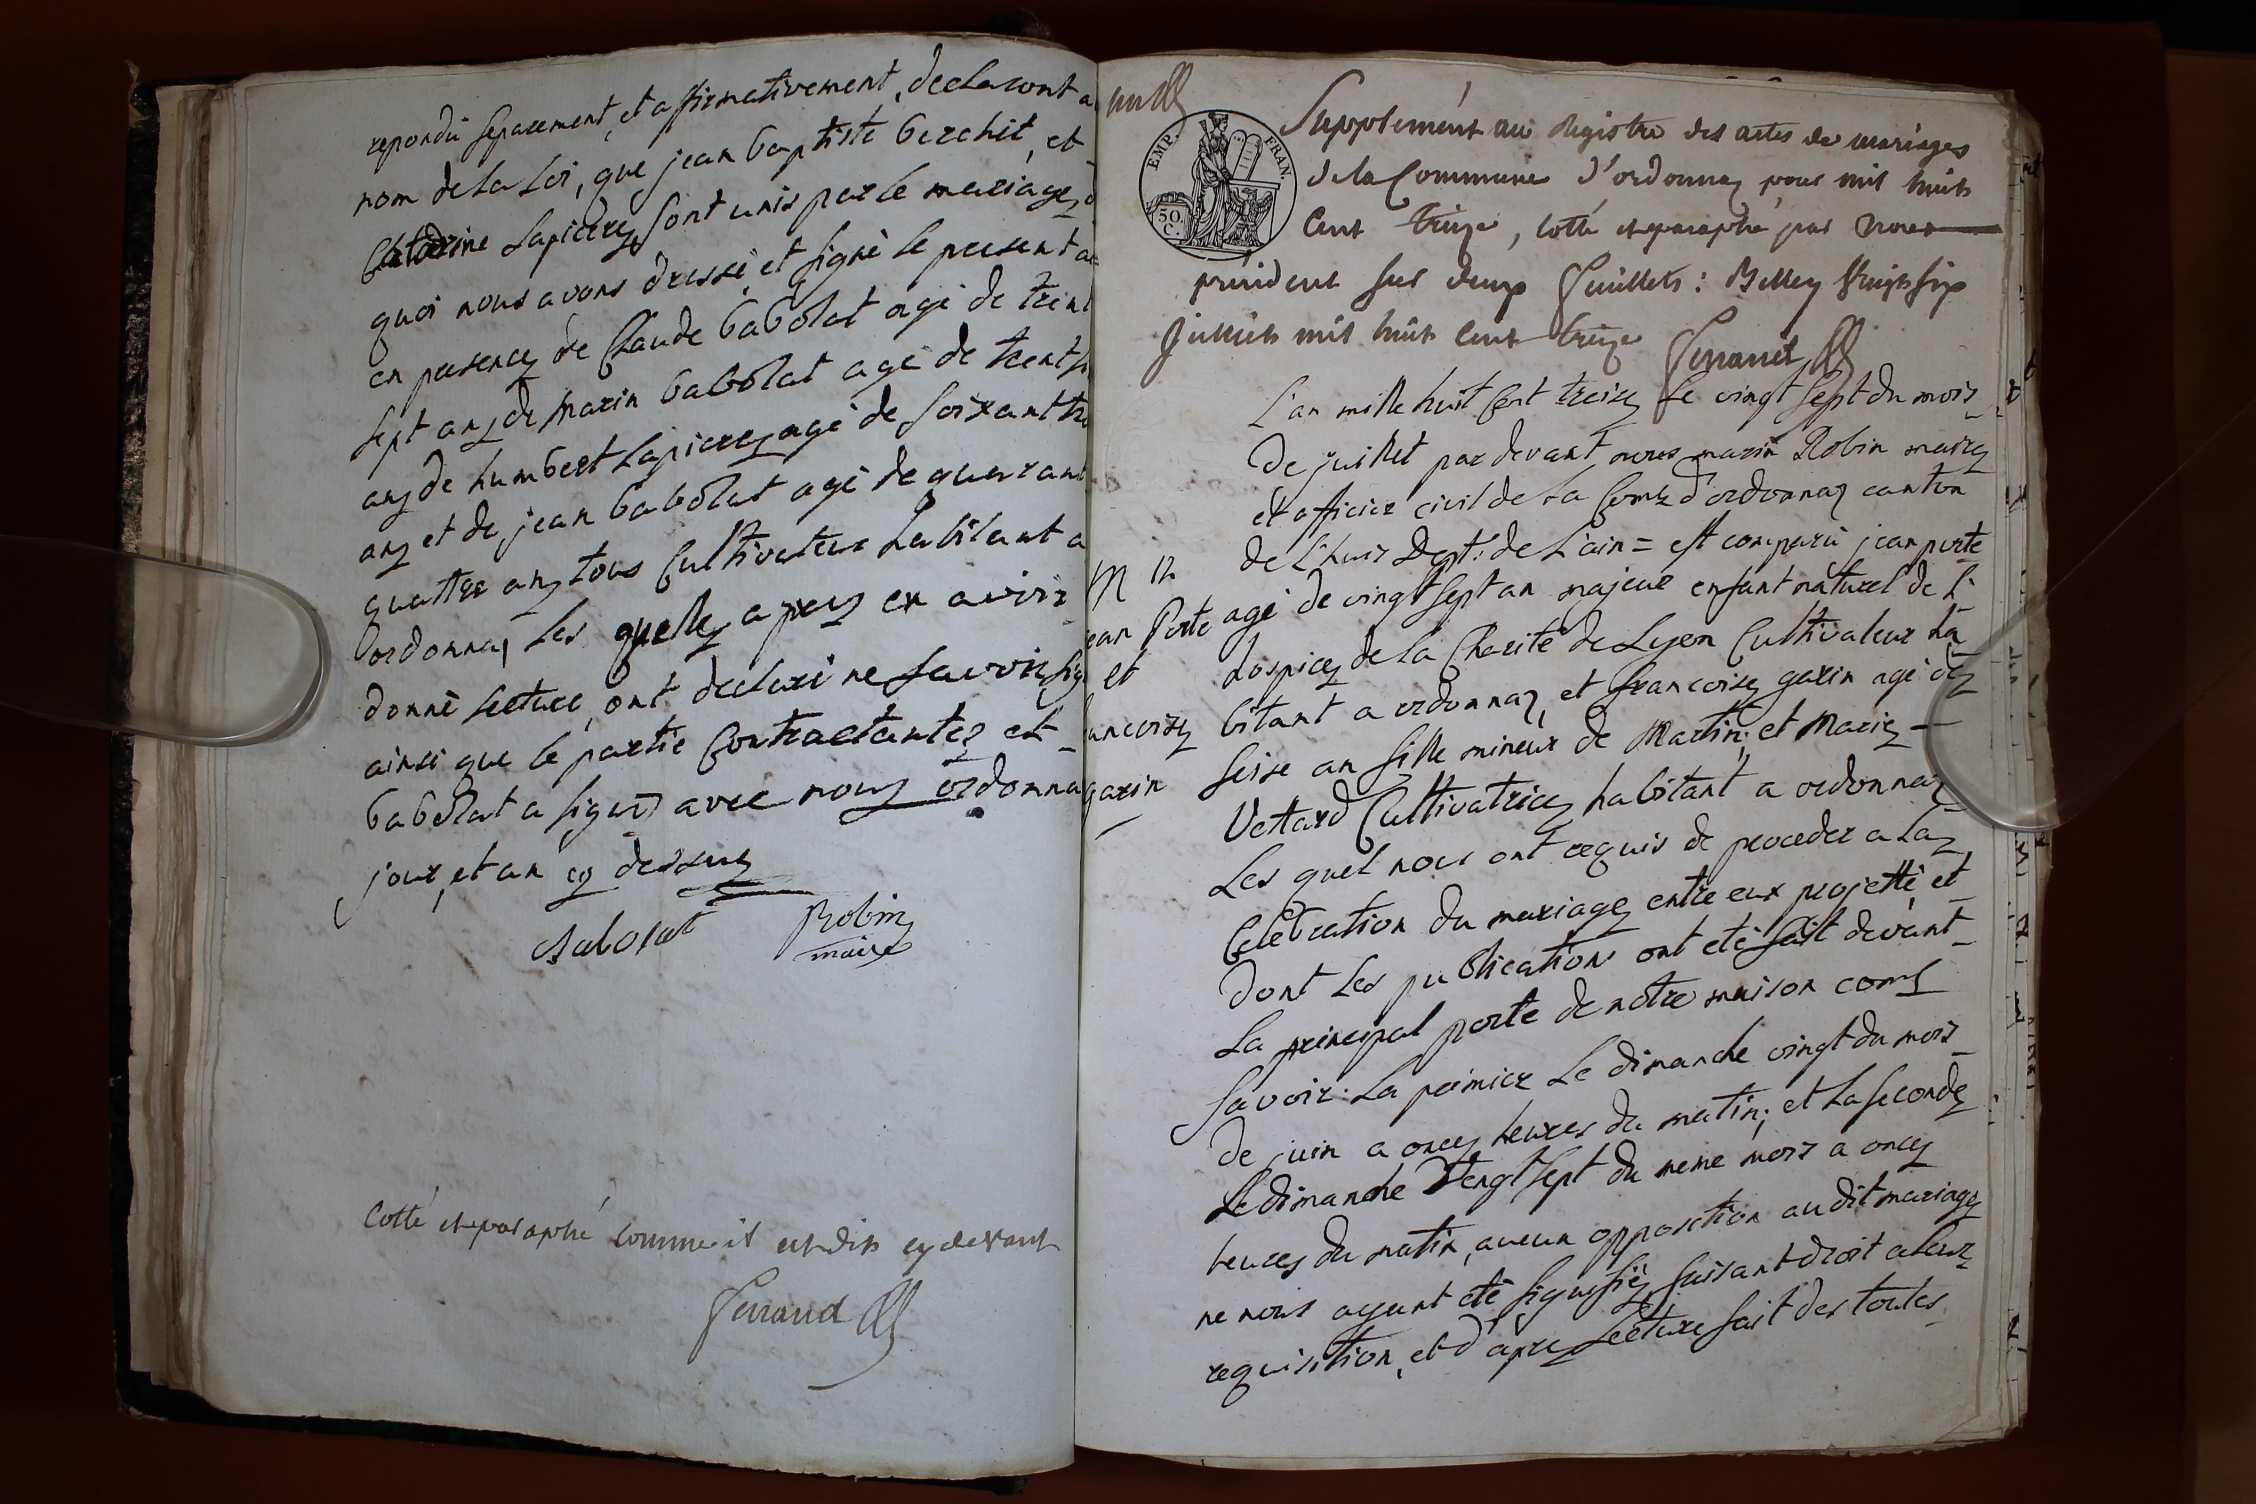 repondu separement, et affirmativement, declaront a
nom de la Loi, que jean baptiste berchit, et
Caterine Lapierre, sont unis par le mariage, d
quoi nous avons dressé, et signé le present ac
en presence de Claude babolat agé de trent
sept ans de marin babolat agé de trent si
ans de humbert Lapierre agé de soixant tr
ans et de jean babolat agé de quarant
quattre ans tous Cultivateur habitant a
ordonnaz Les quelle apres en avoir
donné Lecture, ont declaré ne savoir sig
ainsi que le partie Contractantes et
babolat a signé avec nous ordonna
jour, et an cy dessus
Babolat Robin
maire
Cotté et paraphé comme il est dit cy devant
Ferrand
EMP. FRAN.
50.
C.
Supplément au Registre des actes de mariages
de la Commune d'ordonnaz pour mil huit
Cent treize, cotté et paraphé par nous
président sur deux feuillets : Belley Vingt six
juillet mil huit Cent treize
L'an mille huit Cent treize Le vingt sept du mois
De juillet par devant nous marin Robin maire
et officier civil de La Come d'ordonnaz canton
de L'huis Dept. de L'ain = est comparu jean porte
agé de vingt sept an majeur enfant naturel de L'
hospice de la Charité de Lyon Cultivateur ha
bitant a ordonnaz, et francoise garin agé de
seise an fille mineur de Martin; et Marie
Vettard Cultivatrice habitant a ordonnaz
Les quel nous ont requis de proceder a La
Celebration du mariage entre eux projetté, et
Dont Les publication ont eté fait devant
La principal porte de notre maison come
Savoir : La premier Le dimanche vingt du mois
De juin a onze heures du matin; et La seconde
Le dimanche Vengt sept du meme mois a onze
heures du matin, aucun opposition au dit mariage
ne nous ayant eté signifié, faisant droit a leur
requisition, et d'apres Lecture fait des toutes
M 12
ean Porte
et
ancoise
garin